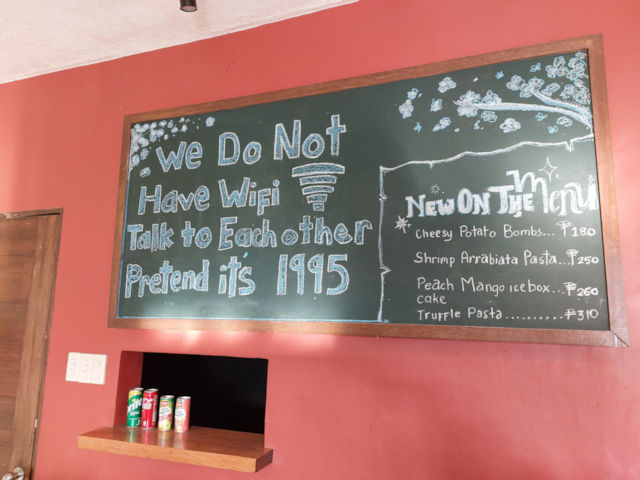 We Do Not
Have Wifi
Talk to Each other
Pretend its 1995
New On The Menu
Cheesy Potato Bombs...₱180
Shrimp Arrabiata Pasta...₱250
Peach Mango icebox...₱260
cake
Truffle Pasta..........₱310
Sprite